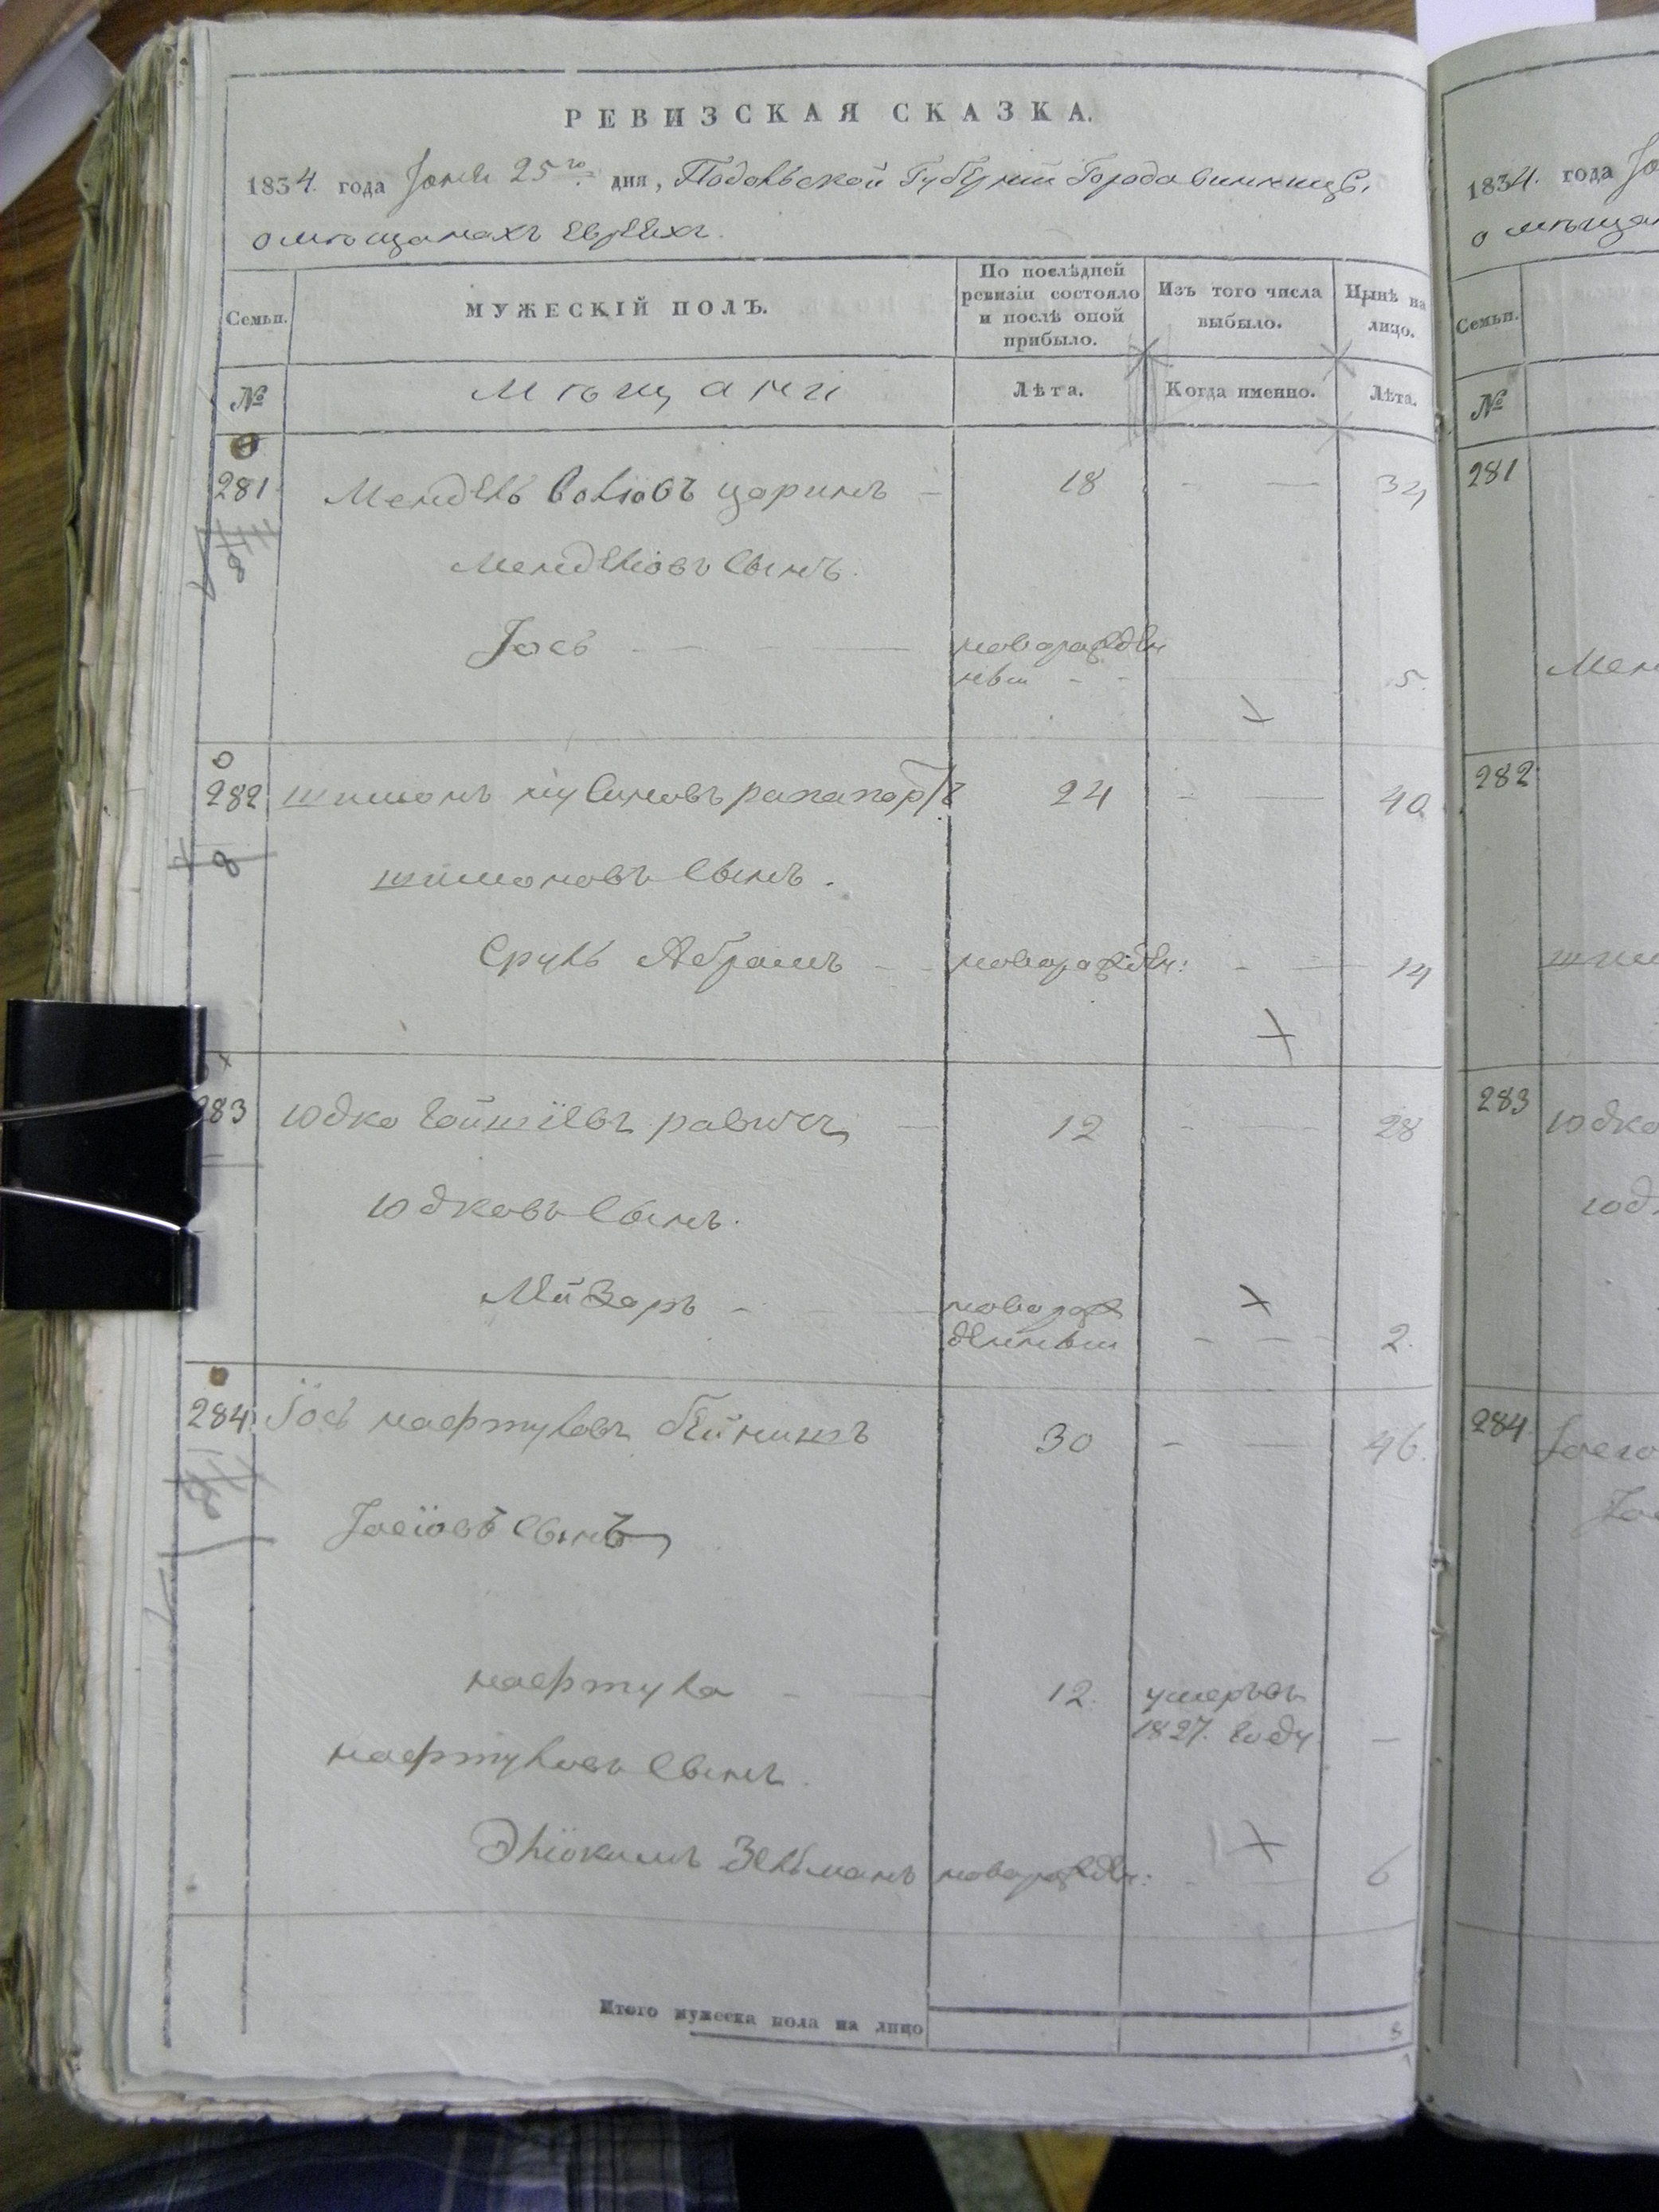 РЕВИЗСКАЯ СКАЗКА.
1834. года Іюня 25го дня, Подольской Губерніи Города Винницы,
о мѣщанахъ евреяхъ.
Семьи.
МУЖЕСКІЙ ПОЛЪ.
По послѣдней ревизіи состояло и послѣ оной прибыло.
Изъ того числа выбыло.
Нынѣ на лицо.
№
Мѣщане
Лѣта.
Когда именно.
Лѣта.
281 Мендель Волковъ Царинъ - 18 - — 34
8
Мендельовъ сынъ.
Іось - - - — новорожден
ный - - — 5.
282 Шимонъ Нусиновъ Рапапортъ 24 - — 40
8
Шимоновъ сынъ.
Сруль Абрамъ - - новорожден: - — 14
283 Юдко — 12 - — 28
Юдковъ сынъ.
Лейзаръ - — новорож
денный - - - 2.
284 Іось Нафтуловъ 30 - — 46.
Іосіовъ сынъ
Нафтула - — 12. умеръ въ
1827. году —
Нафтуловъ сынъ.
Эліокимъ Зельманъ новорожден: - — 6
Итого мужеска пола на лицо
1834. года
о мѣщан
Семьи.
№
281
Мен
282
Шим
283 Юдко
Юдк
284